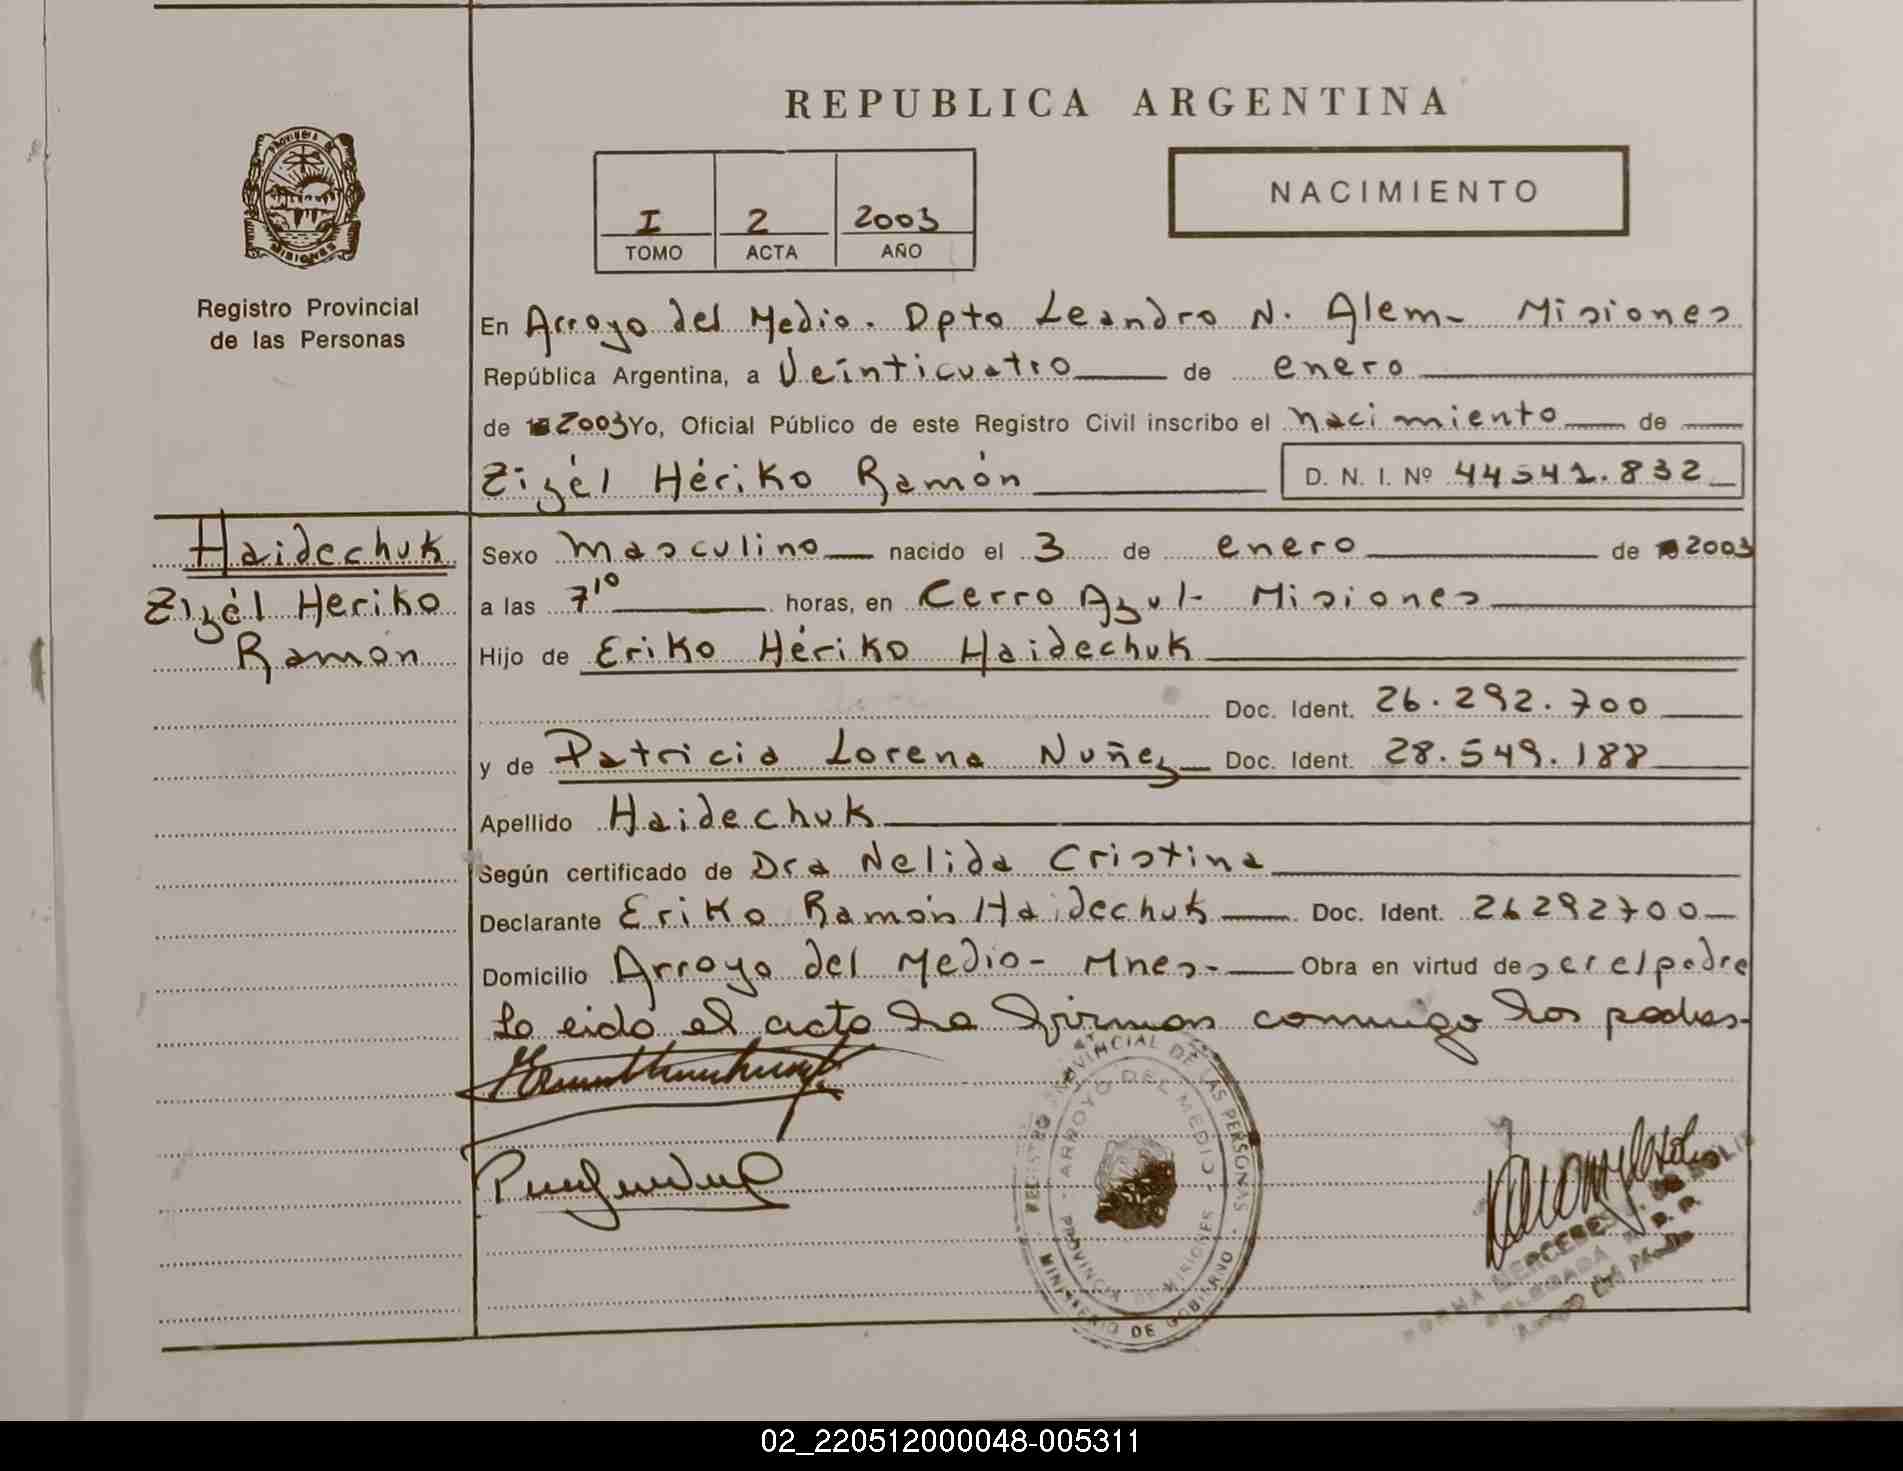 REPUBLICA ARGENTINA
PROVINCIA DE
MISIONES
Registro Provincial
de las Personas
I 2 2003
TOMO ACTA AÑO
NACIMIENTO
En Arroyo del Medio. Dpto Leandro N. Alem - Misiones
República Argentina, a Veinticuatro de enero
de 2003 Yo, Oficial Público de este Registro Civil inscribo el Nacimiento de
Zizél Hériko Ramón D. N. I. Nº 44541.832
Haidechuk
Zizél Heriko
Ramón
Sexo Masculino nacido el 3 de enero de 2003
a las 7¹⁰ horas, en Cerro Azul - Misiones
Hijo de Eriko Hériko Haidechuk
Doc. Ident. 26.292.700
y de Patricia Lorena Nuñez Doc. Ident. 28.549.188
Apellido Haidechuk
Según certificado de Dra Nelida Cristina
Declarante Eriko Ramón Haidechuk Doc. Ident. 26292700
Domicilio Arroyo del Medio - Mnes - Obra en virtud de ser el padre
Leido el acta la firman conmigo los padres -
REGISTRO PROVINCIAL DE LAS PERSONAS
ARROYO DEL MEDIO
PROVINCIA DE MISIONES
MINISTERIO DE GOBIERNO
NORMA MERCEDES
DELEGADA
Arroyo del Medio
02_220512000048-005311